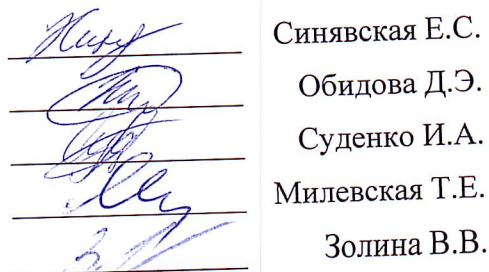 Синявская Е.С.
Обидова Д.Э.
Суденко И.А.
Милевская Т.Е.
Золина В.В.